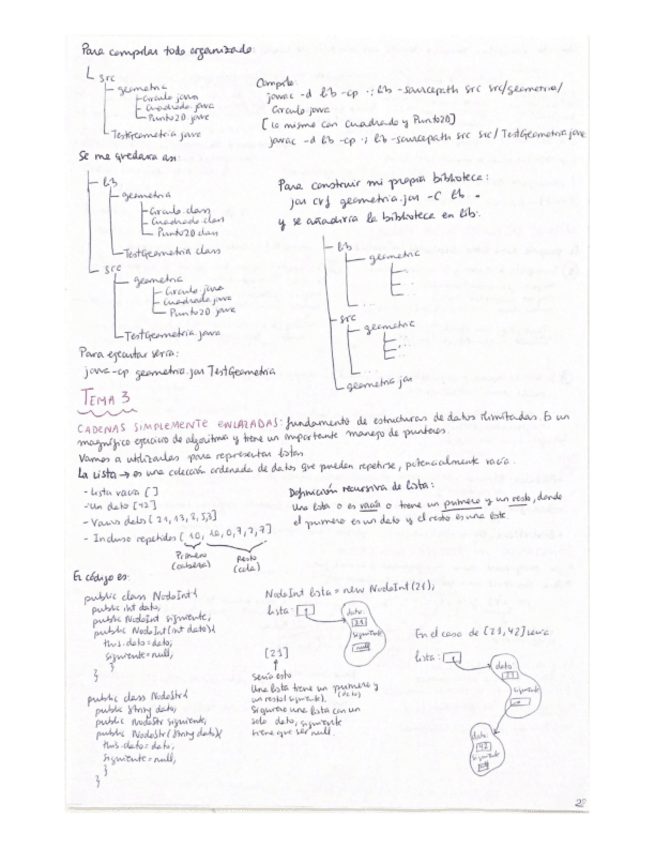 Para compilar todo organizado:
src
geometria
Circulo.java
Cuadrado.java
Punto2D.java
TestGeometria.java
Compilo:
javac -d lib -cp .; lib -sourcepath src src/geometria/
Circulo.java
[Lo mismo con Cuadrado y Punto2D]
javac -d lib -cp .; lib -sourcepath src src/TestGeometria.java
Se me quedara asi:
lib
geometria
Circulo.class
Cuadrado.class
Punto2D.class
TestGeometria.class
src
geometria
Circulo.java
Cuadrado.java
Punto2D.java
TestGeometria.java
Para construir mi propia biblioteca:
jar cvf geometria.jar -C lib .
y se añadiria la biblioteca en lib:
lib
geometria
...
src
geometria
...
geometria.jar
Para ejecutar seria:
java -cp geometria.jar TestGeometria
TEMA 3
CADENAS SIMPLEMENTE ENLAZADAS: fundamento de estructuras de datos ilimitadas. Es un
magnifico ejercicio de algoritmia y tiene un importante manejo de punteros.
Vamos a utilizarlas para representar listas
La Lista → es una colección ordenada de datos que pueden repetirse, potencialmente vacia.
- Lista vacia []
- Un dato [42]
- Varios datos [21, 13, 8, 5, 3]
- Incluso repetidos [10, 10, 0, 7, 7, 7]
Primero
(cabeza)
Resto
(cola)
Definición recursiva de lista:
Una lista o es vacia o tiene un primero y un resto, donde
el primero es un dato y el resto es una lista.
El código es:
public class NodoInt{
public int dato;
public NodoInt siguiente;
public NodoInt(int dato){
this.dato=dato;
siguiente=null;
}
}
public class NodoStr{
public String dato;
public NodoStr siguiente;
public NodoStr(String dato){
this.dato=dato;
siguiente=null;
}
}
NodoInt lista = new NodoInt(21);
lista:
dato:
21
siguiente
null
[21]
seria esto
Una lista tiene un primero y
un resto (siguiente). (dato)
Si quiere una lista con un
solo dato, siguiente
tiene que ser null.
En el caso de [21,42] seria:
lista:
dato:
21
siguiente
dato:
42
siguiente
null